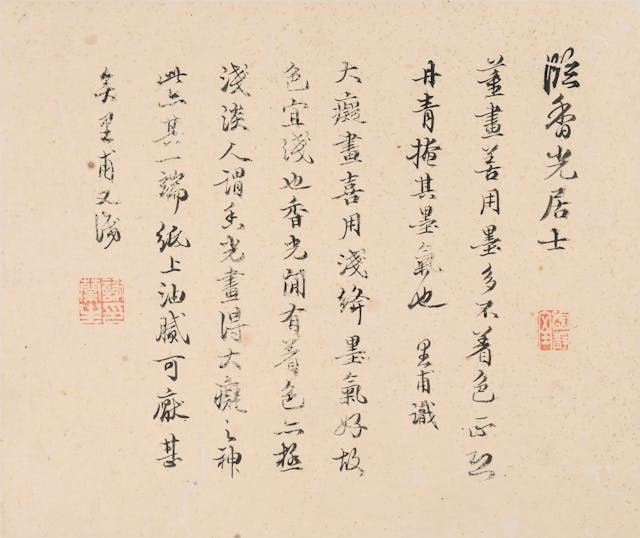 臨香光居士
董畫善用墨多不着色正恐
丹青掩其墨氣也 里甫識
大癡畫喜用淺絳墨氣好故
色宜淺也香光間有着色亦極
淺淡人謂香光畫得大癡之神
此亦其一端紙上油膩可厭甚
矣里甫又識